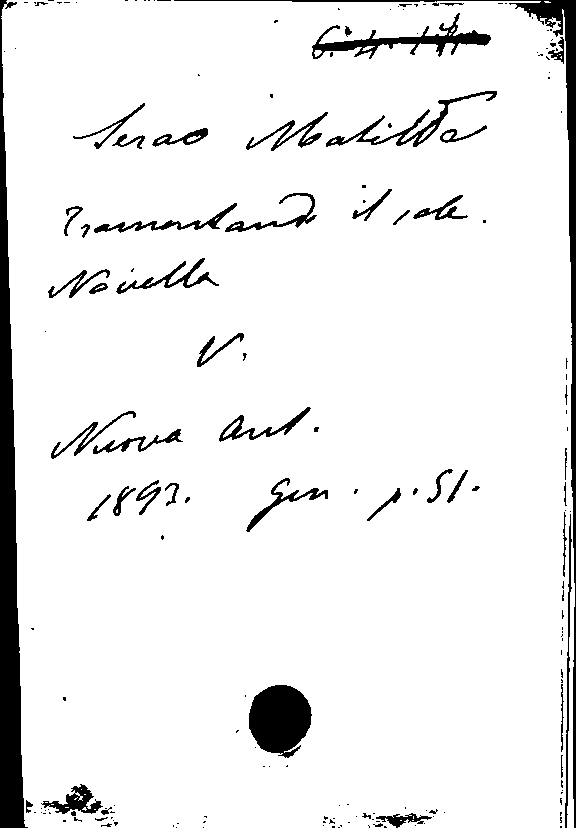 Serao Matilde
Tramontando il sole.
Novella
V.
Nuova Ant.
1893. Gen. p. 51.